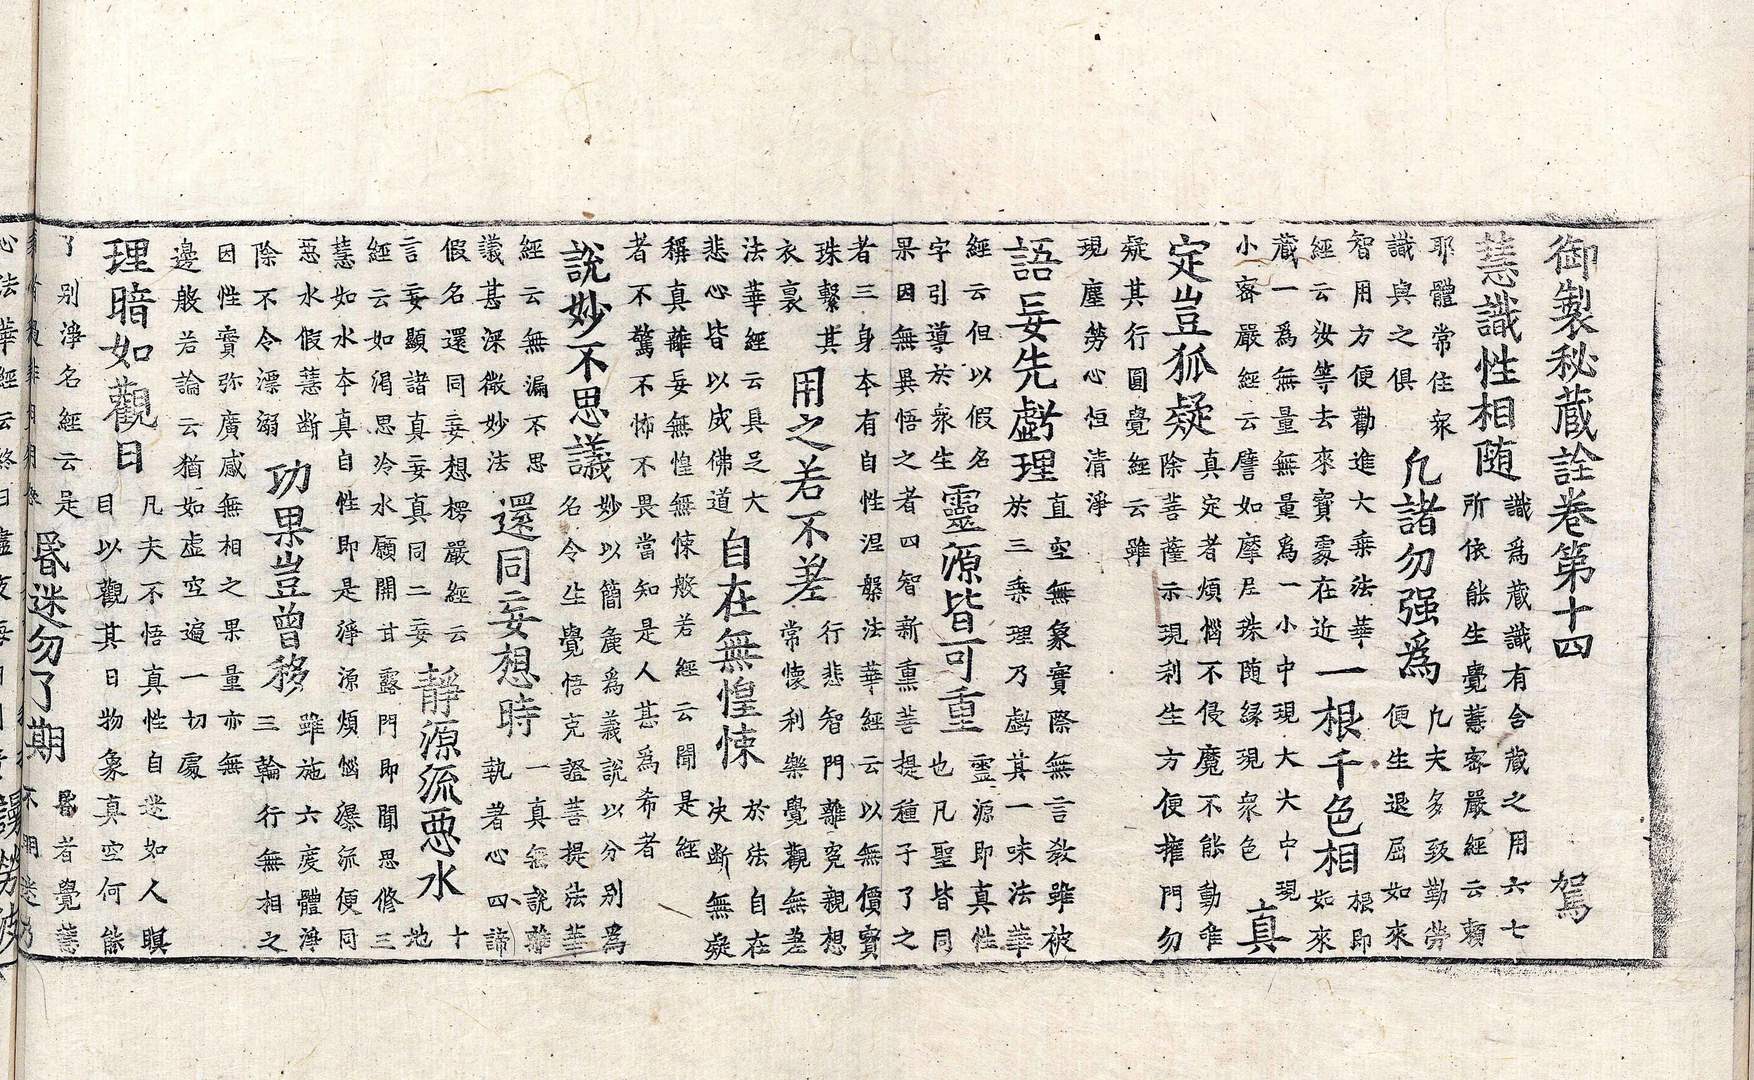 御製秘蔵詮卷第十四　駕
慧識性相随
識爲蔵識有含蔵之用六七
所依能生覺慧密嚴經云頼
耶體常住衆
識與之俱
凡諸勿强爲
凡夫多致勤勞
便生退屈如來
智用方便勸進大乗法華
經云汝等去來寳處在近
一根千色相
根即
如來
蔵一爲無量無量爲一小中現大大中現
小密嚴經云譬如摩尼珠随縁現衆色
真
定豈狐疑
真定者煩惱不侵魔不能動唯
除菩薩示現利生方便擁門勿
疑其行圓覺經云雖
現塵勞心恒清淨
語妄先虧理
直空無象實際無言教雖被
於三乗理乃虧其一味法華
經云但以假名
字引導於衆生
靈源皆可重
靈源即真性
也凡聖皆同
果因無異悟之者四智新熏菩提種子了之
者三身本有自性涅槃法華經云以無價寳
珠繫其
衣裏
用之若不差
行悲智門離寃親想
常懷利樂覺觀無差
法華經云具足大
悲心皆以成佛道
自在無惶悚
於法自在
决斷無疑
稱真離妄無惶無悚般若經云聞是經
者不驚不怖不畏當知是人甚爲希者
說妙不思議
妙以簡麁爲義說以分别爲
名令生覺悟克證菩提法華
經云無漏不思
議甚深微妙法
還同妄想時
一真無說離
執著心四諦
假名還同妄想楞嚴經云
言妄顯諸真妄真同二妄
靜源流恶水
十
地
經云如渴思冷水願開甘露門即聞思修三
慧如水本真自性即是淨源煩惱瀑流便同
恶水假慧断
除不令漂溺
功果豈曾移
雖施六度體淨
三輪行無相之
因性實弥廣感無相之果量亦無
邊般若論云猶如虚空遍一切處
理暗如觀日
凡夫不悟真性自迷如人瞑
目以觀其日物象真空何能
了别淨名經云是
昬迷勿了期
昬者覺慧
不明迷乃
心法華經云終日盡夜每日月